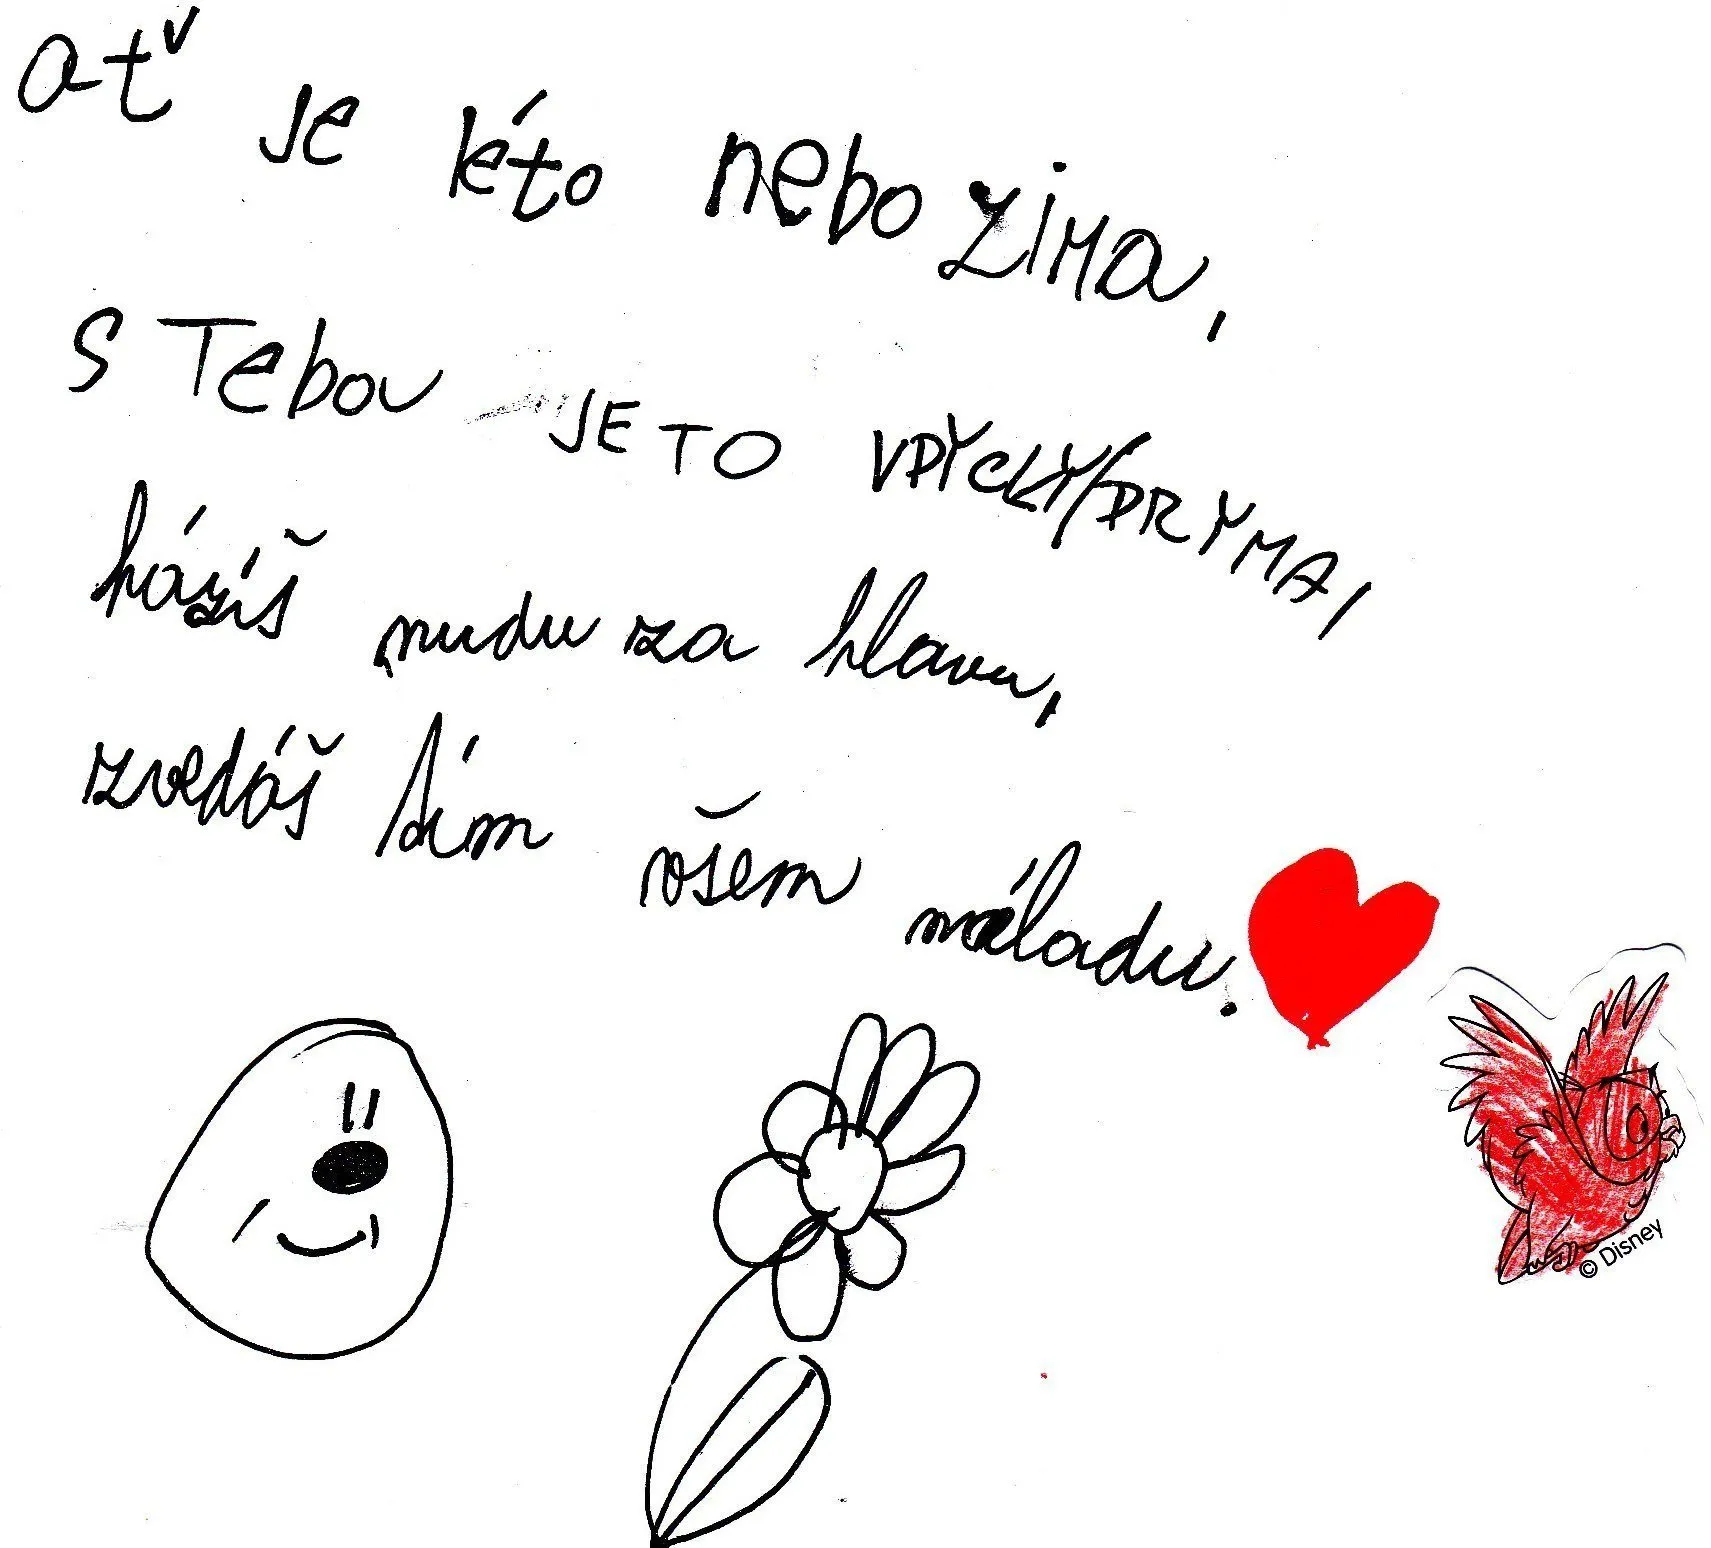 ať je léto nebo zima,
S Tebou JE TO VDYCKY PRYMA,
házíš nudu za hlavu,
zvedáš tím všem náladu.
© Disney